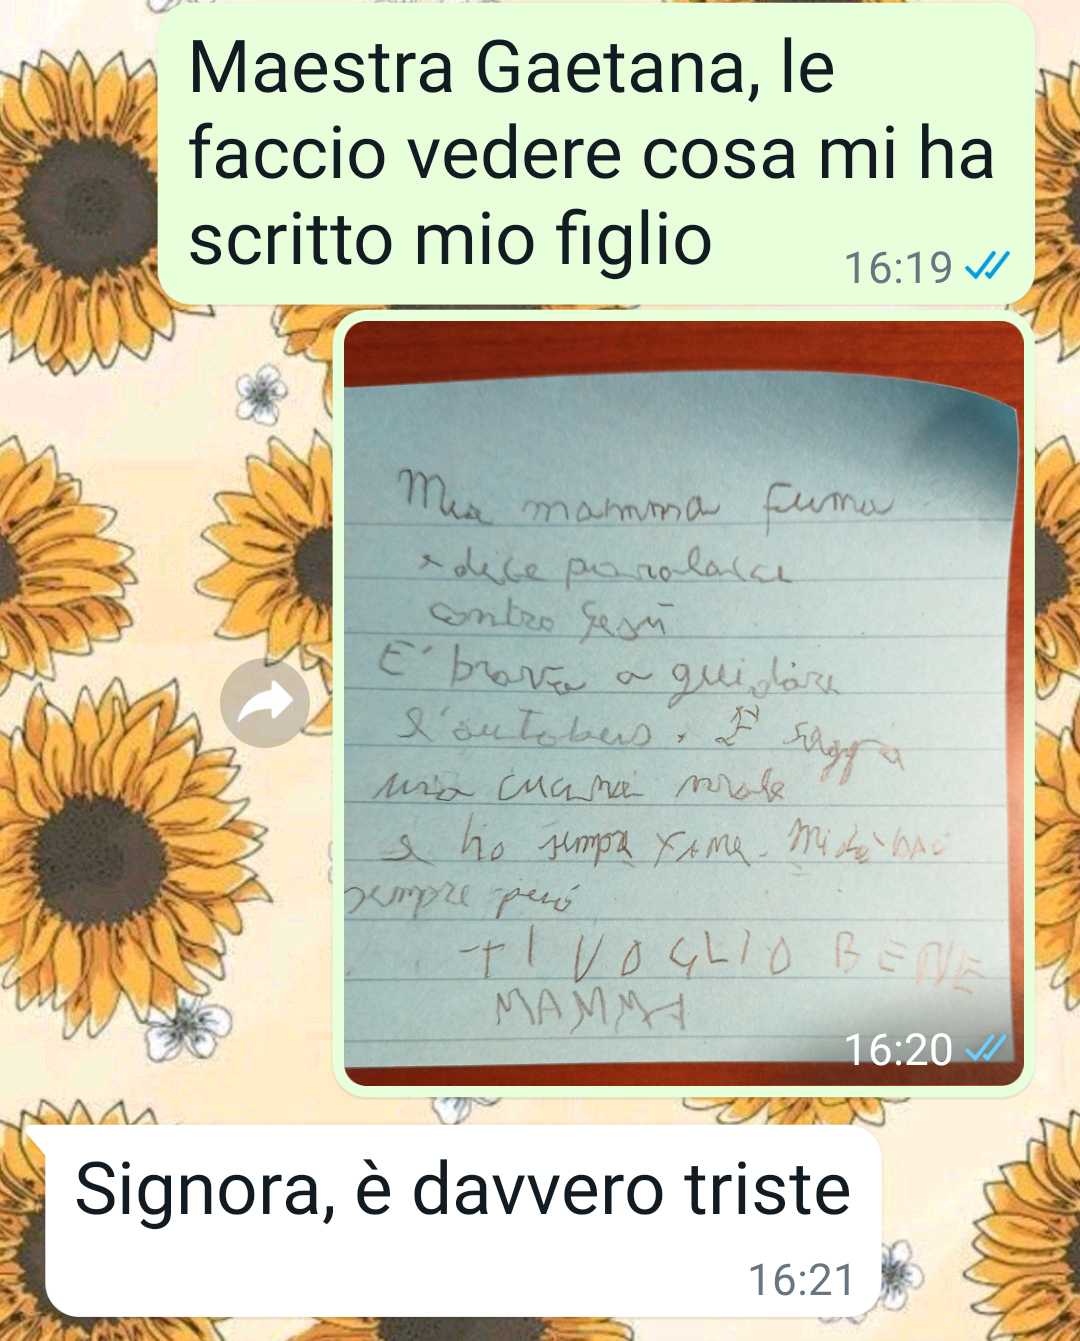 Maestra Gaetana, le
faccio vedere cosa mi ha
scritto mio figlio
16:19
Mia mamma fuma
e dice parolacce
contro Gesù
E' brava a guidare
l'autobus. È saggia
ma cucina male
e ho sempre fame. Mi dà baci
sempre però
TI VOGLIO BENE
MAMMA
16:20
Signora, è davvero triste
16:21